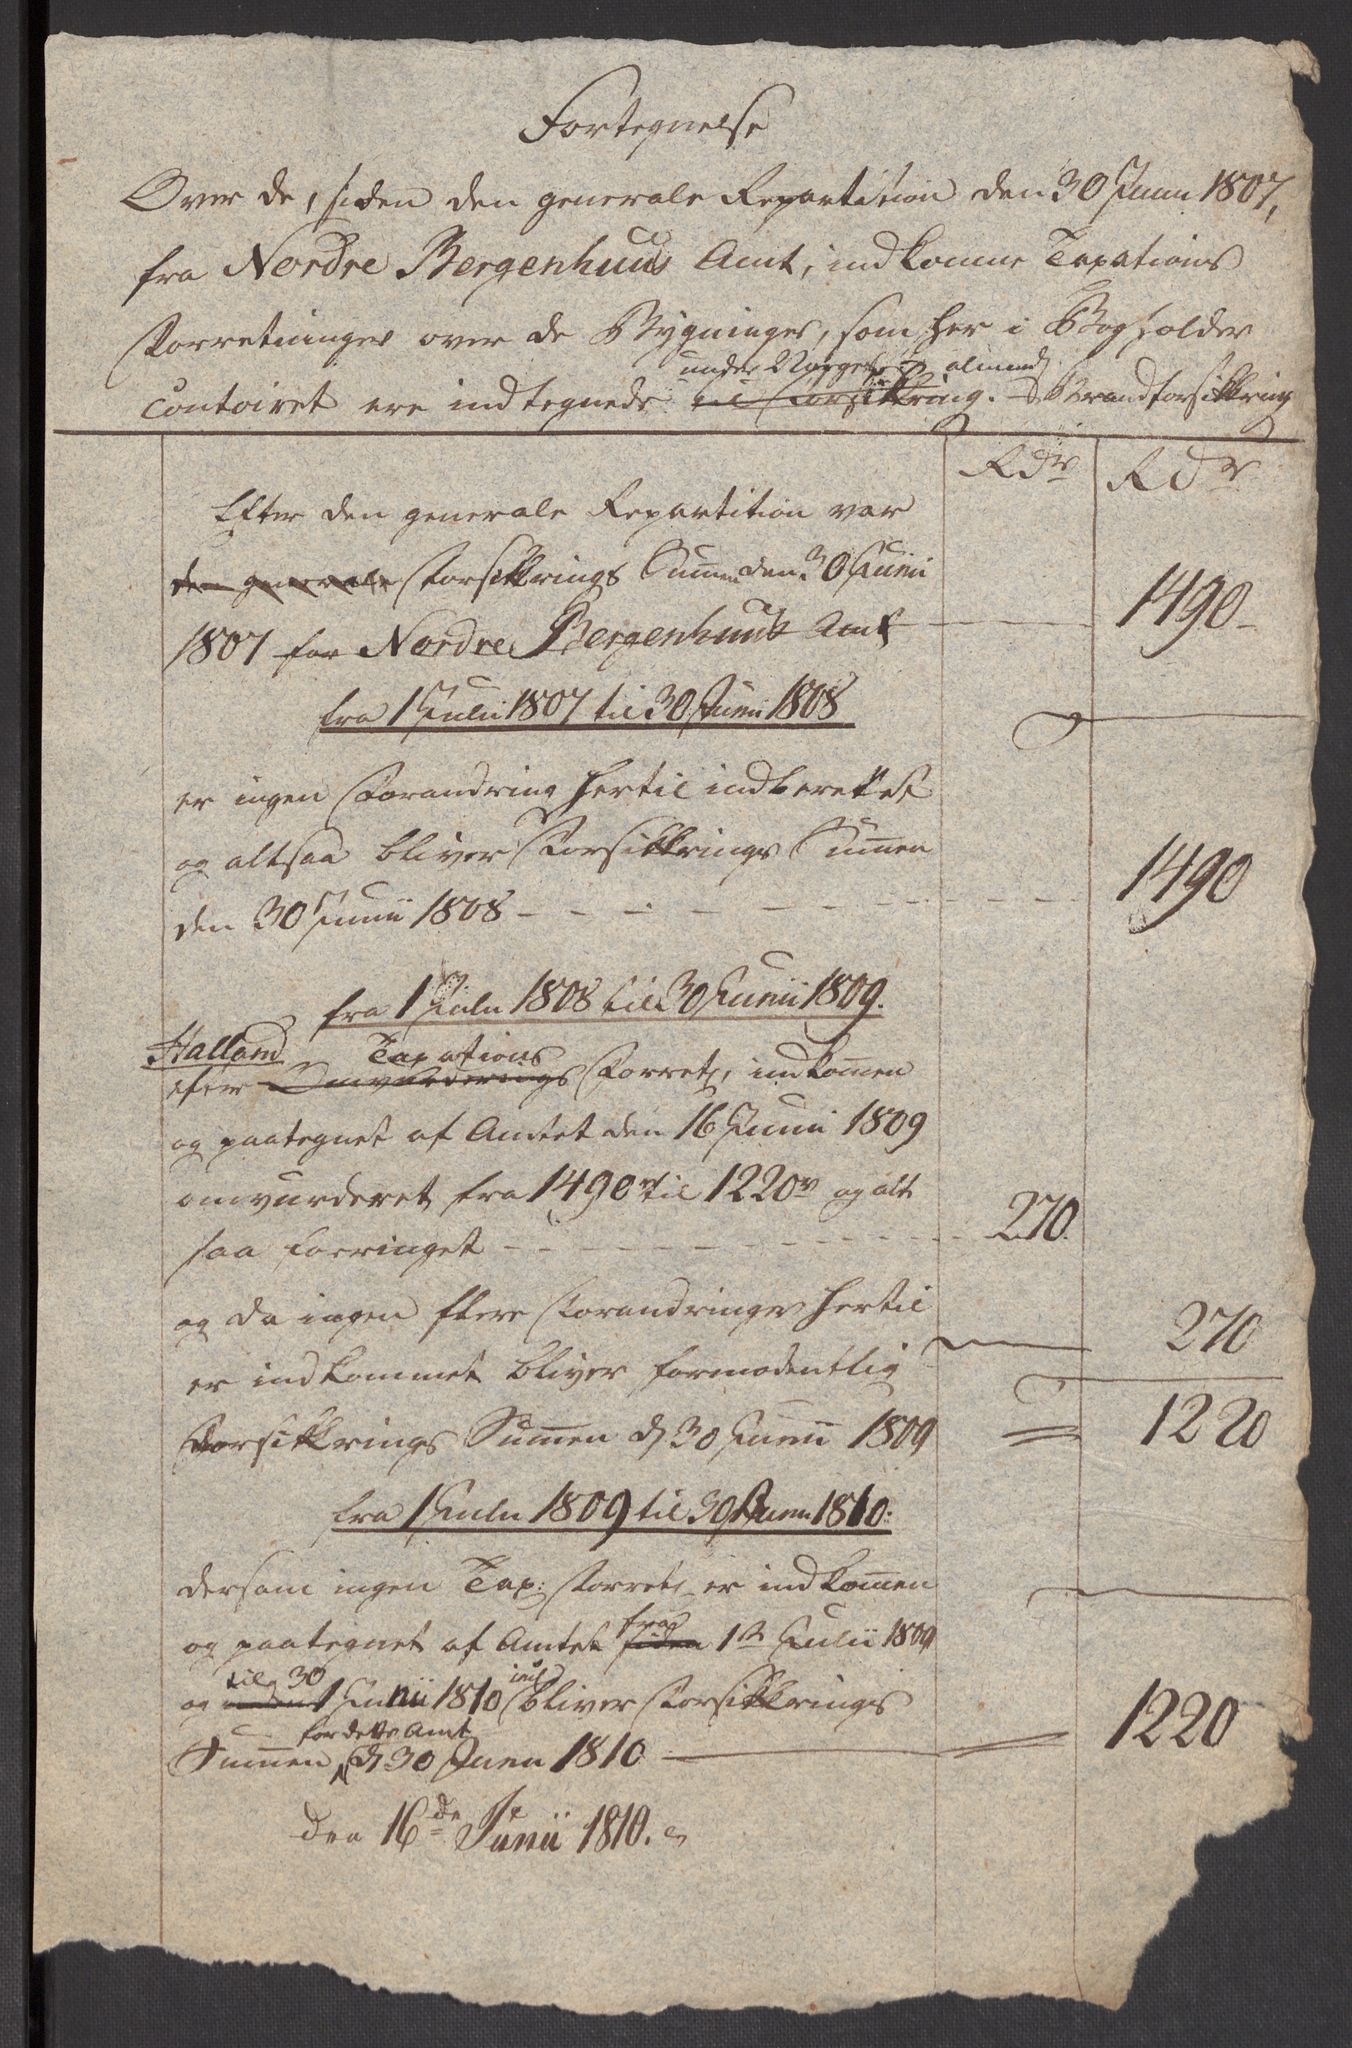 Fortegnelse
Over de, siden den generale Repartition den 30 Junii 1807,
fra Nordre Bergenhuus Amt, indkomne Taxations
Forretninger over de Bygninger, som her i Bogholder
under Norges almind:
Contoiret ere indtegnede til Forsikring. Brandforsikkring
Rdr Rdr
Efter den generale Repartition var
den generale Forsikkrings Summen den 30 Junii
1807 for Nordre Bergenhuus Amt 1490
fra 1 Julii 1807 til 30 Junii 1808
er ingen Forandring hertil indberettet
og altsaa bliver Forsikkrings Summen
den 30 Junii 1808 1490
fra 1 Julii 1808 til 30 Junii 1809.
Halland Taxations
efter Omvurderings Forretn, indkommen
og paategnet af Amtet den 16 Junii 1809
omvurderet fra 1490 rd til 1220 rd og alt
saa forringet 270.
og da ingen flere Forandringer hertil
er indkommet bliver formodentlig 270
Forsikkrings Summen d 30 Junii 1809 1220
fra 1 Julii 1809 til 30 Junii 1810.
dersom ingen Tax: Forretn er indkommen
fra
og paategnet af Amtet siden 1 Julii 1809
til 30 incl
og Junii 1810 bliver Forsikkrings
for dette Amt
Summen d 30 Junii 1810 1220
den 16de Junii 1810.